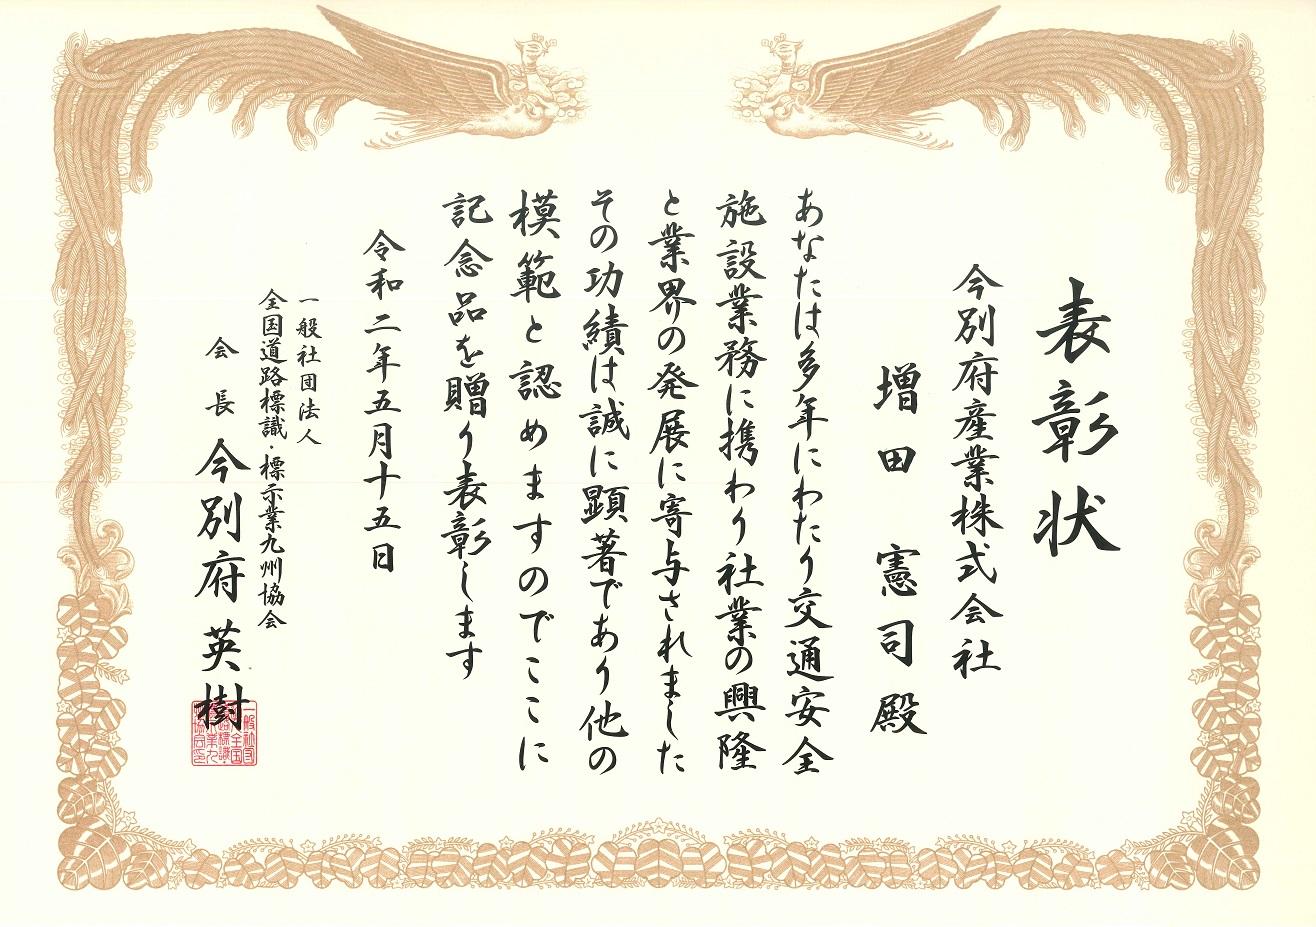 表彰状
今別府産業株式会社
増田 憲司 殿
あなたは多年にわたり交通安全
施設業務に携わり社業の興隆
と業界の発展に寄与されました
その功績は誠に顕著であり他の
模範と認めますのでここに
記念品を贈り表彰します
令和二年五月十五日
一般社団法人
全国道路標識・標示業九州協会
会長 今別府英樹